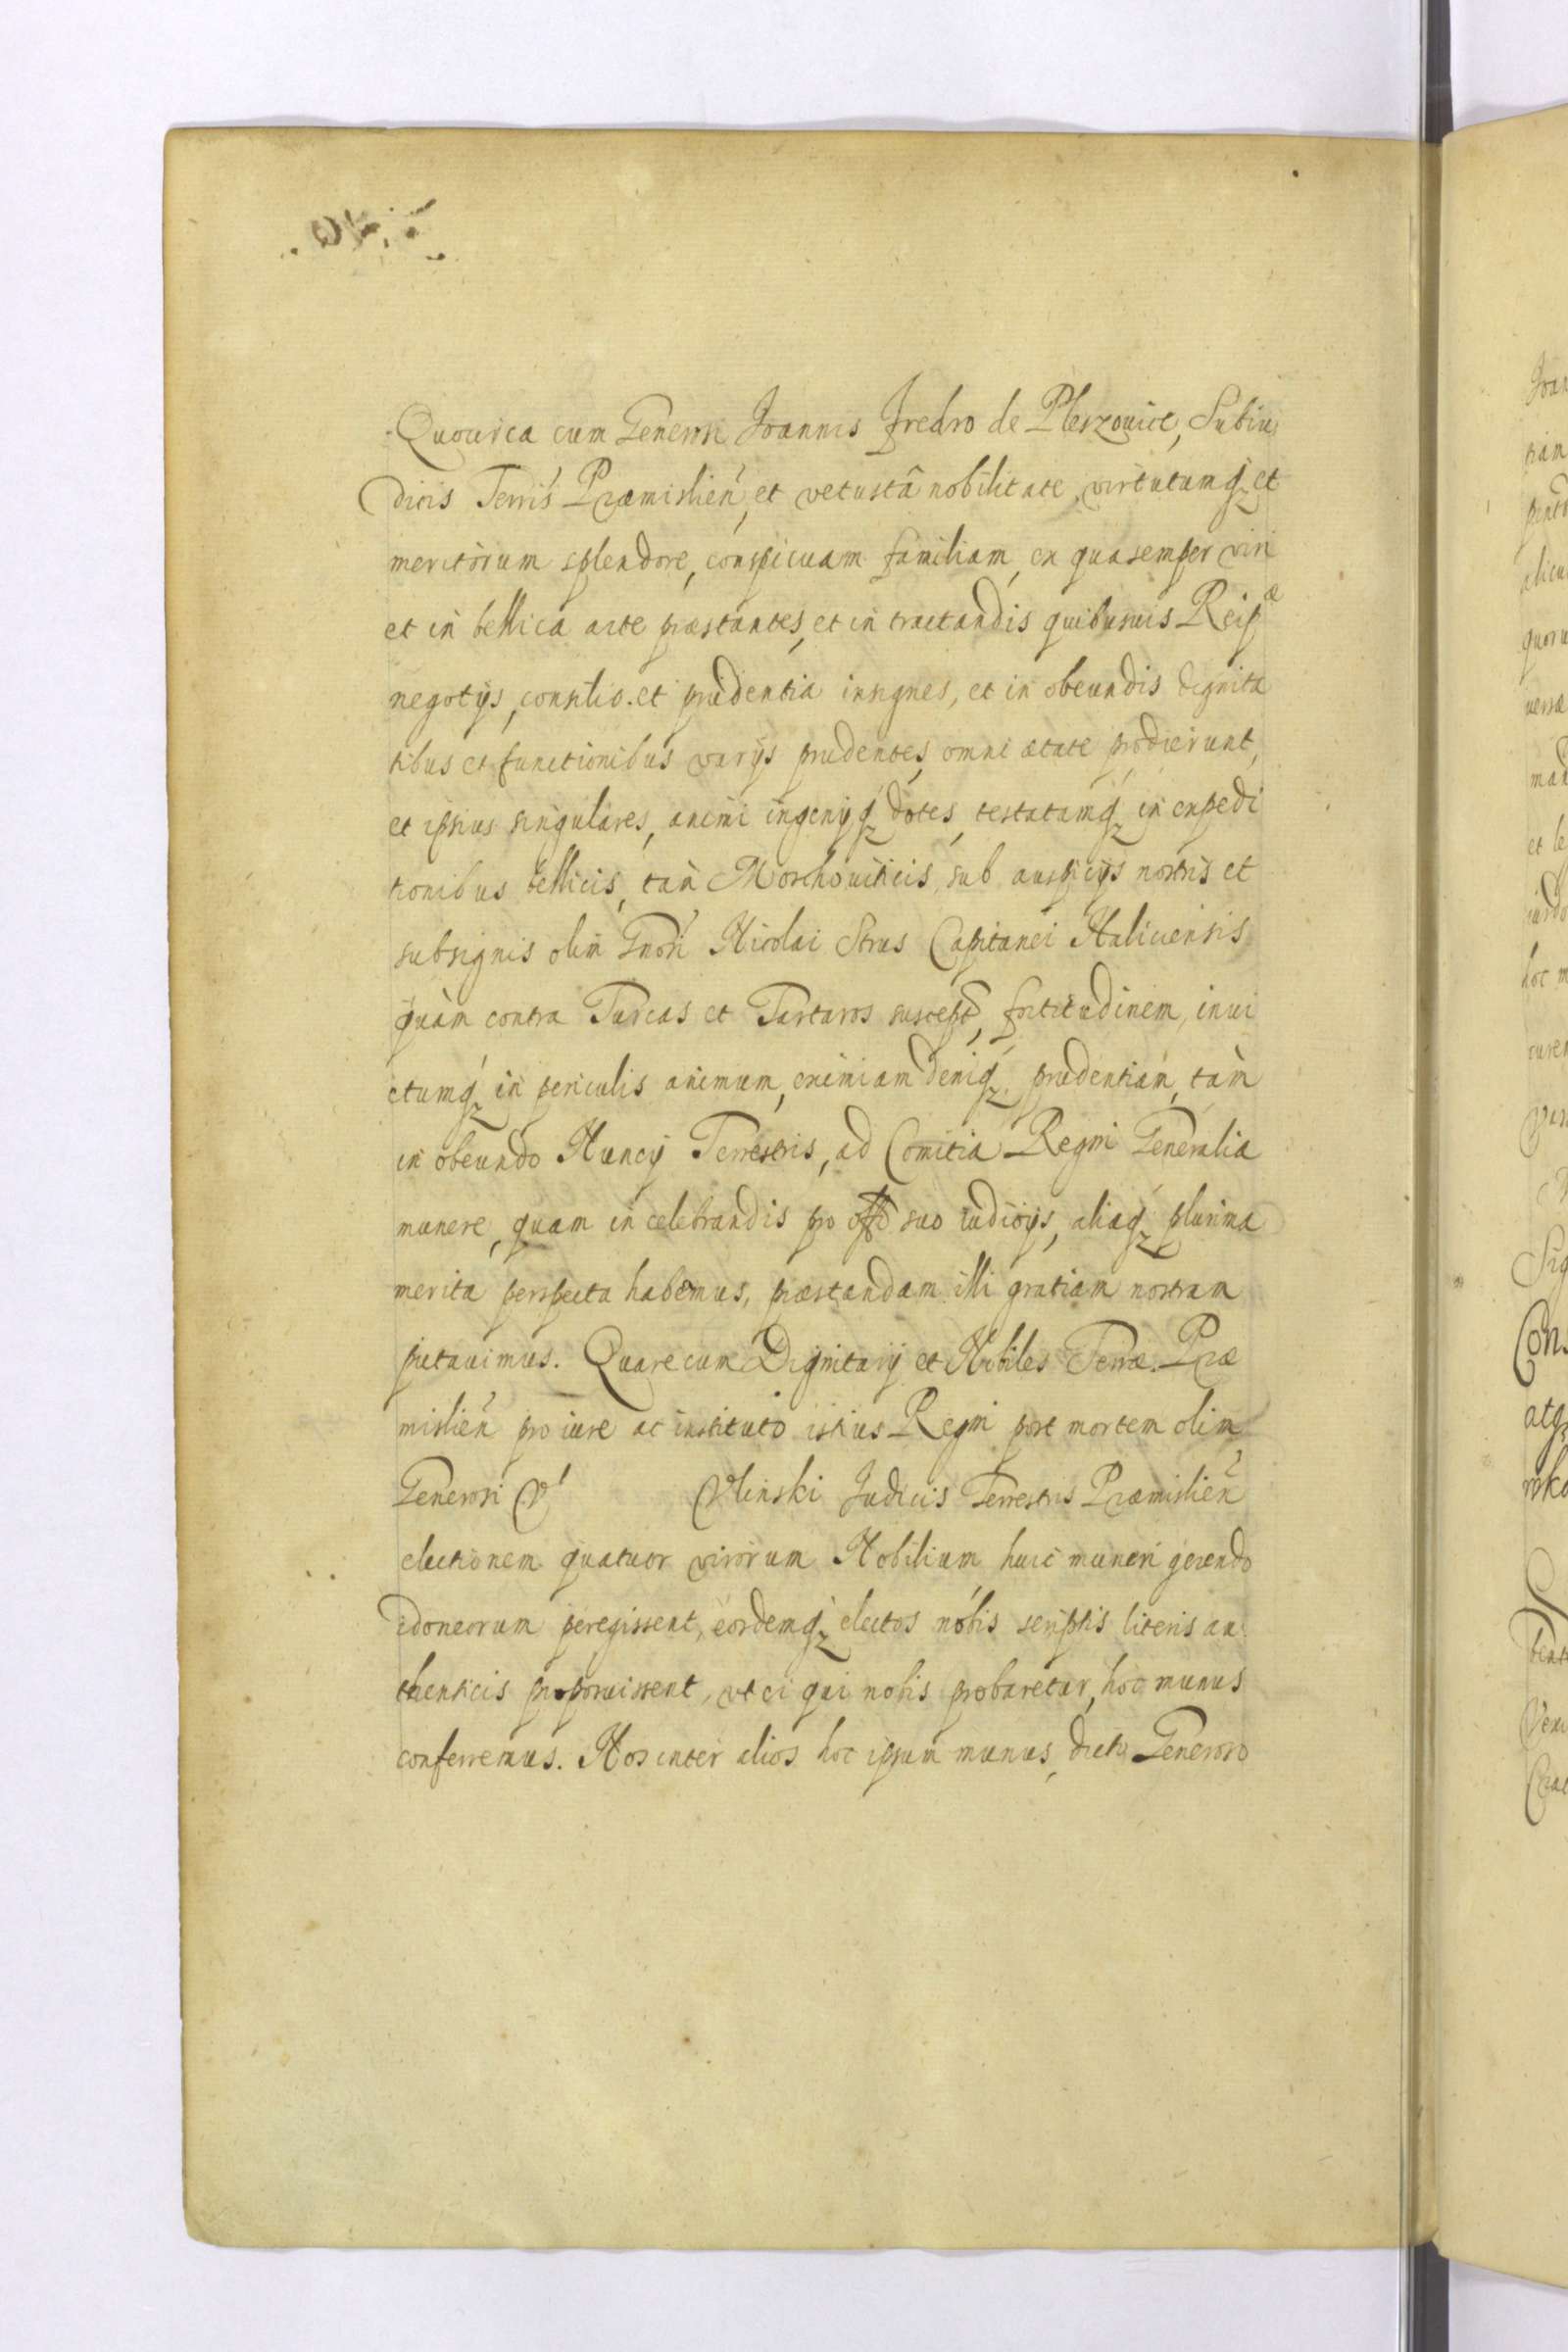 Quocirca cum Generosi Joannis Fredro de Pleszouice, Subiu
dicis Terris Præmislien, et vetustâ nobilitate, virtutumq et
meritorum splendore, conspicuam familiam, ex qua semper viri
et in bellica arte præstantes, et in tractandis quibusuis Reipæ
negotijs, consilio et prudentia insignes, et in obeundis dignita
tibus et functionibus varijs prudentes, omni ætate prodierunt,
et ipsius singulares, animi ingenijq dotes, testatamq in expedi
tionibus bellicis, tam Moschouiticis, sub auspicijs nostris et
subsignis olim Gnosi Nicolai Strus Capitanei Haliciensis
quàm contra Turcas et Tartaros suscept, fortitudinem, inui
ctumq in periculis animum, eximiam deniq prudentiam, tàm
in obeundo Nuncij Terrestris, ad Comitia Regni Generalia
munere, quam in celebrandis pro offo suo iudicijs, aliaq plurima
merita perspecta habemus, præstandam illi gratiam nostram
putauimus. Quare cum Dignitarij et Nobiles Terræ Præ
mislien pro iure ac instituto istius Regni post mortem olim
Generosi V Vlinski Judicis Terrestris Præmislien
electionem quatuor virorum Nobilium huic muneri gerendo
idoneorum peregissent, eosdemq electos nobis scriptis literis au
thenticis proposuissent, vt ei qui nobis probaretur, hoc munus
conferremus. Nos inter alios hoc ipsum munus, dicto Generoso